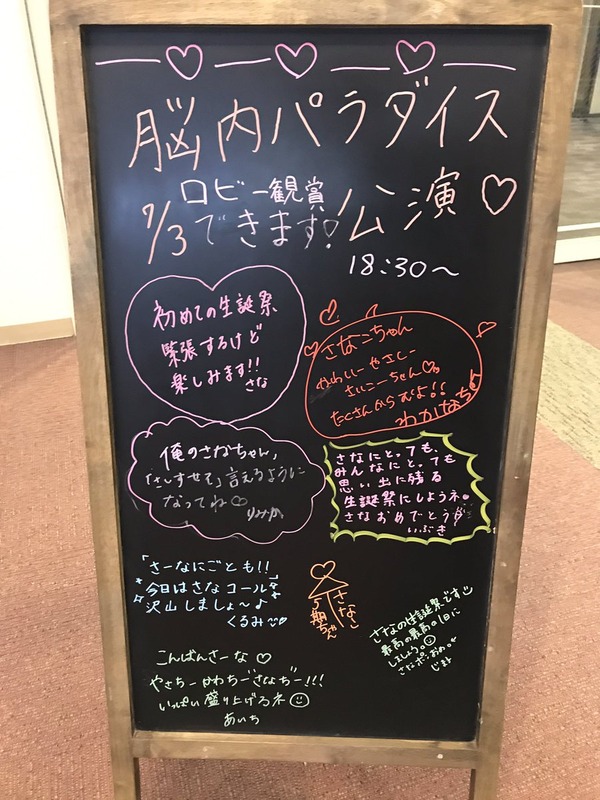 脳内パラダイス
ロビー観賞
できます!
7/3 公演♡
18:30〜
初めての生誕祭
緊張するけど
楽しみます!!
さな
さなこちゃん
かわいーやさしー
さいこーちゃん
たくさんからむよ!!
わかなちゃん
俺のさなちゃん、
言えるように
なってね♡
りみか
さなにとっても、
みんなにとっても
思い出に残る
生誕祭にしようネ。
さなおめでとう
いぶき
「さーなにごとも!!
今日はさなコール
沢山しましょ〜♪
くるみ
さなこ
5期ちゃん
さなの生誕祭です
最高の最高の1日に
しましょう。
こんばんさーな♡
やさちーかわちーさなちー!!!
いっぱい盛り上げるネ
あいち